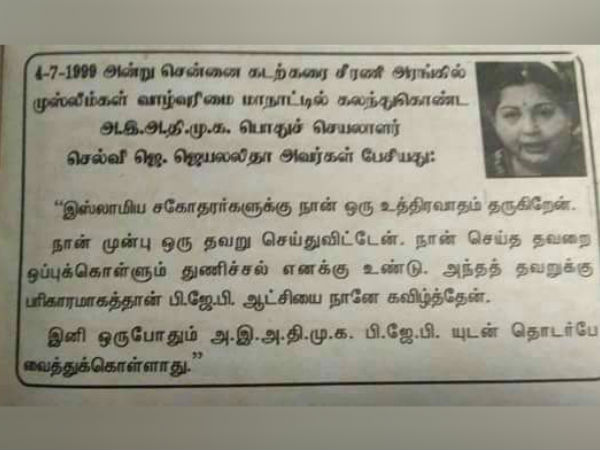 4-7-1999 அன்று சென்னை கடற்கரை சீரணி அரங்கில்
முஸ்லீம்கள் வாழ்வுரிமை மாநாட்டில் கலந்துகொண்ட
அ.இ.அ.தி.மு.க. பொதுச் செயலாளர்
செல்வி ஜெ. ஜெயலலிதா அவர்கள் பேசியது:
“இஸ்லாமிய சகோதரர்களுக்கு நான் ஒரு உத்திரவாதம் தருகிறேன்.
நான் முன்பு ஒரு தவறு செய்துவிட்டேன். நான் செய்த தவறை
ஒப்புக்கொள்ளும் துணிச்சல் எனக்கு உண்டு. அந்தத் தவறுக்கு
பரிகாரமாகத்தான் பி.ஜே.பி. ஆட்சியை நானே கவிழ்த்தேன்.
இனி ஒருபோதும் அ.இ.அ.தி.மு.க பி.ஜே.பி. யுடன் தொடர்பே
வைத்துக்கொள்ளாது.”